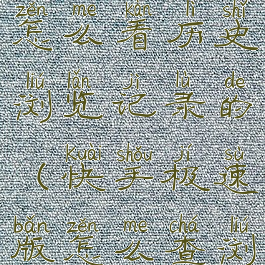 zěn me kàn lì shǐ
怎么看历史
liú lǎn jì lù de
浏览记录的
kuài shǒu jí sù
(快手极速
bǎn zěn me chá liú
版怎么查浏